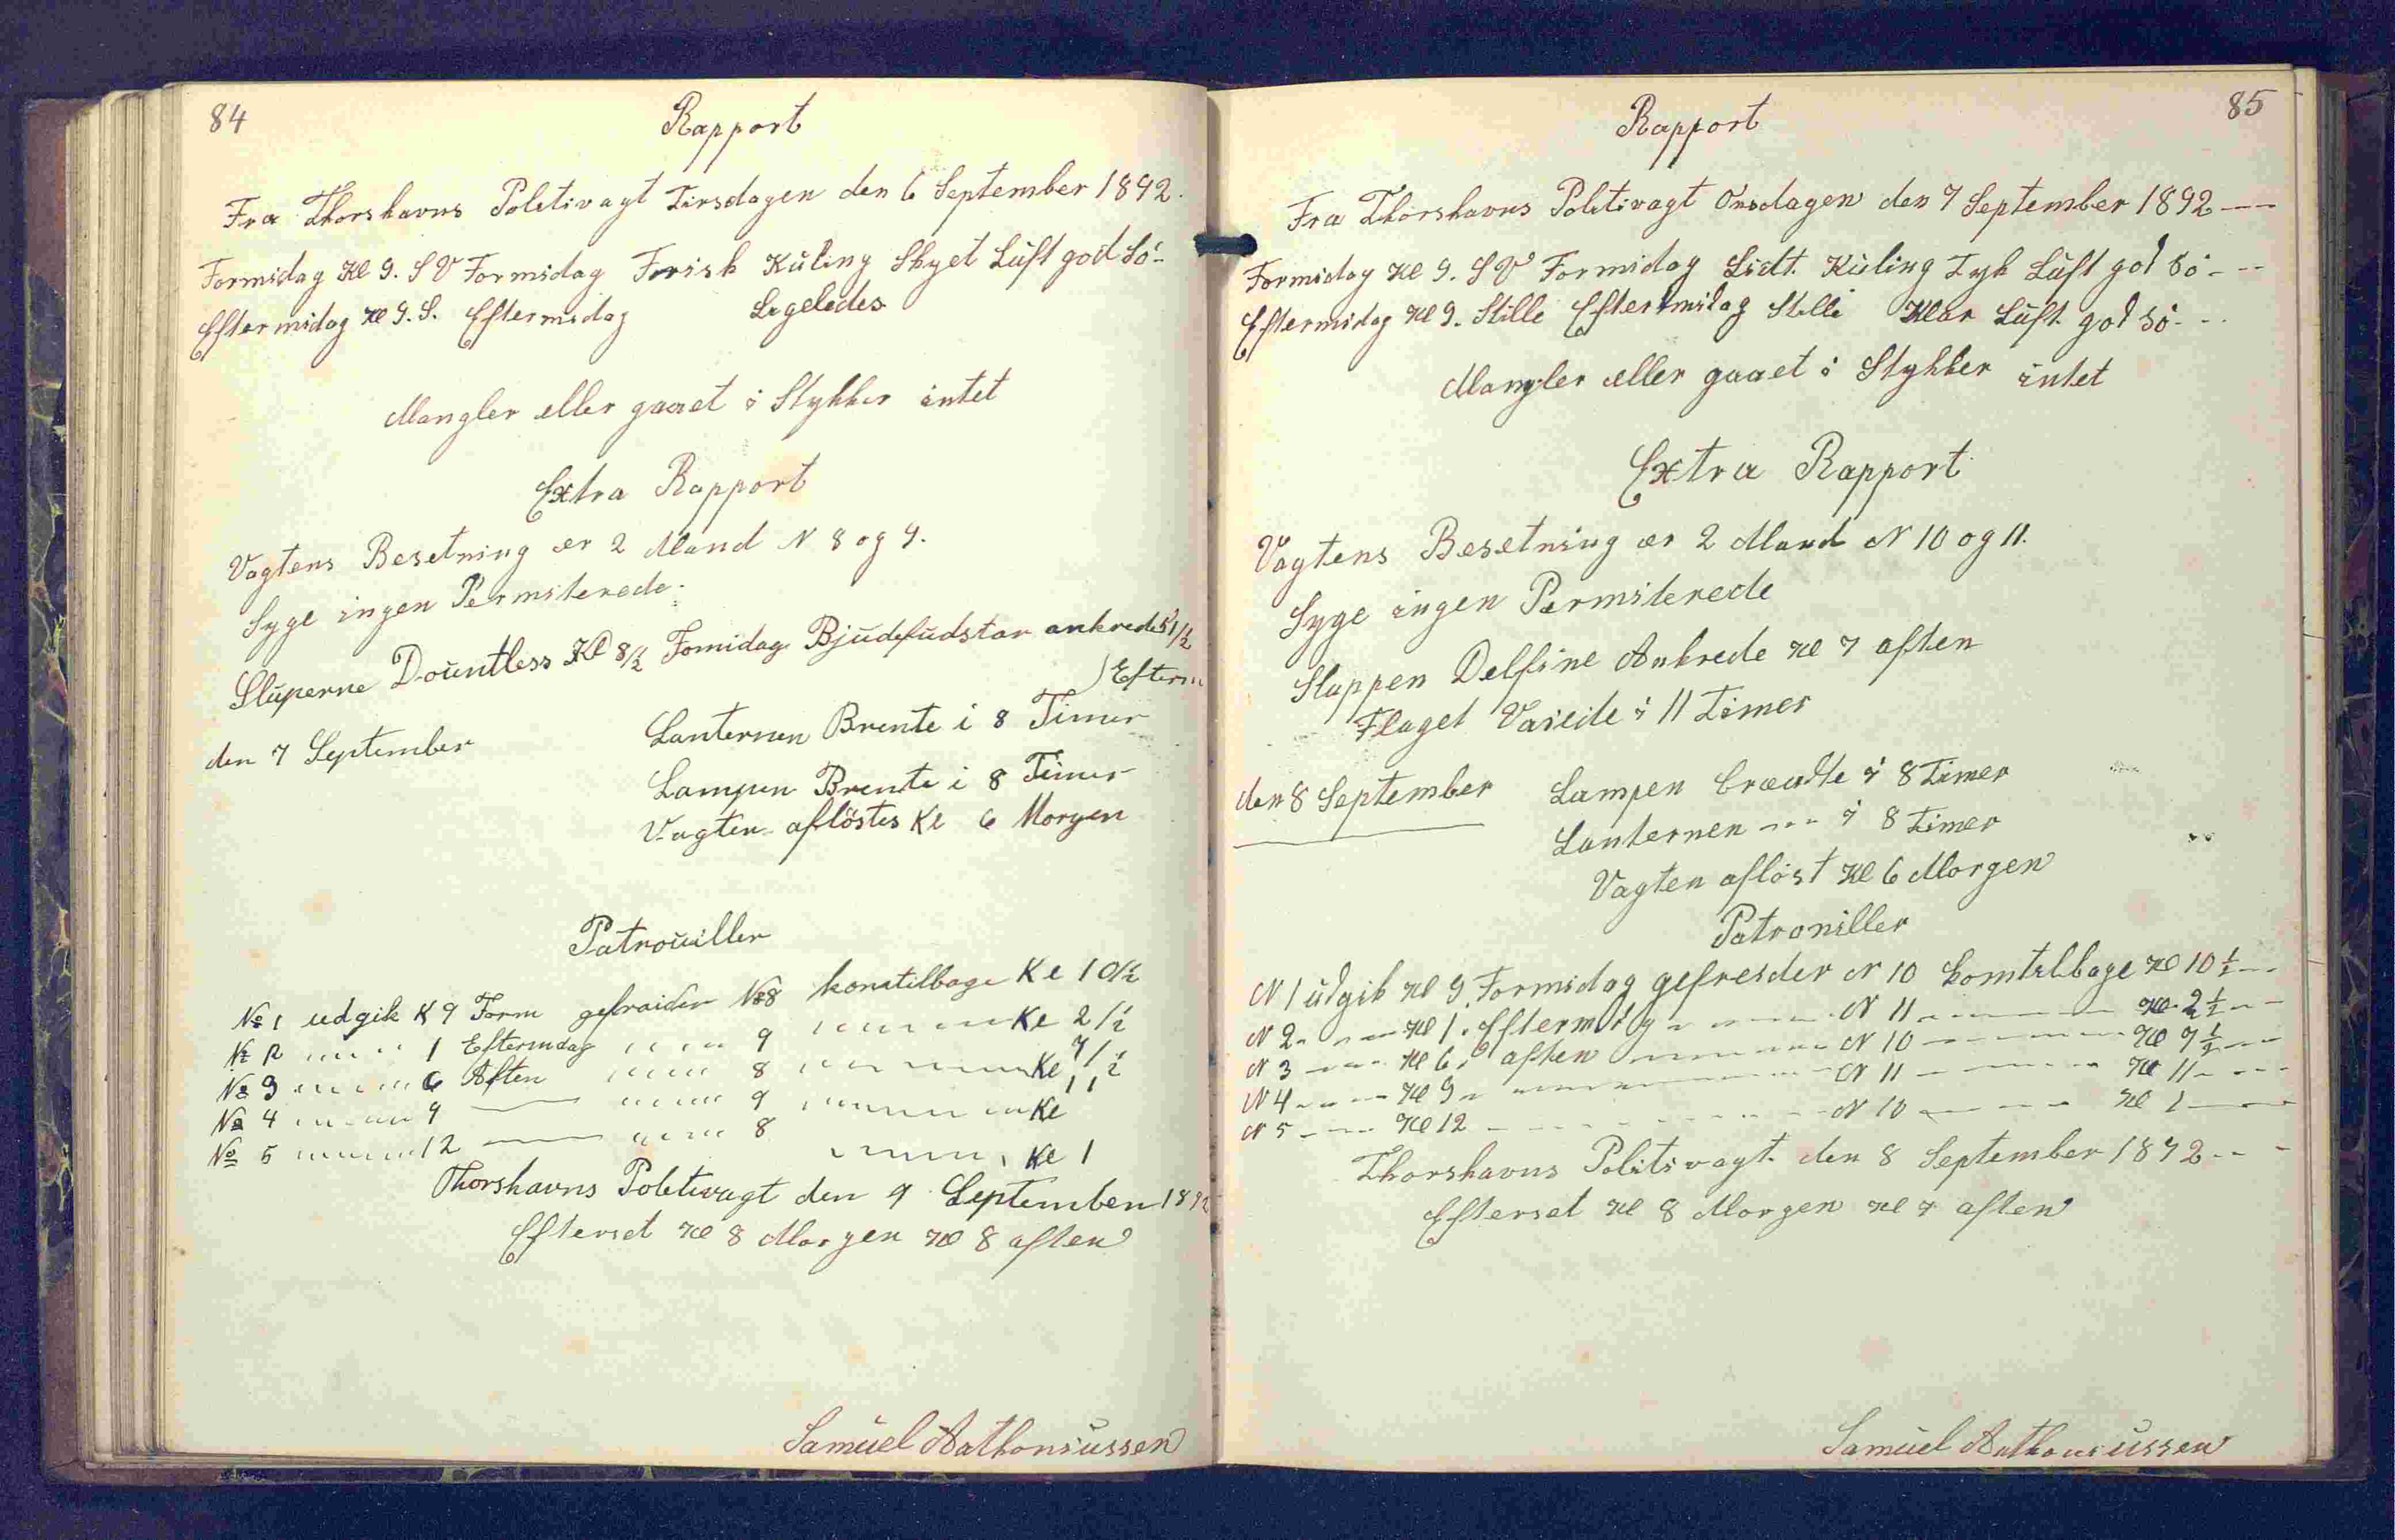 84
Rapport
Fra Thorshavns Politivagt Tirsdagen den 6 September 1892.
Formidag Kl 9. S V Formidag Frisk Kuling Skyet Luft god Sö-
Eftermidag Kl 9. S. Eftermidag Ligeledes
Mangler eller gaaet i Stykker intet
Extra Rapport
Vagtens Besetning er 2 Mand N 8 og 9.
Syge ingen Permiterede.
Sluperne Dountless Kl 8½ Fomidag ankrede 5½
Efterm
den 7 September Lanternen Brente i 8 Timer
Lampen Brente i 8 Timer
Vagten aflöstes Kl 6 Morgen
Patrouiller
№ 1 udgik K 9 Form № 8 komtilbage Kl 10½
№ 2 " " " 1 Eftermdag " " " 9 " " " Kl 2½
№ 3 " " " 6 Aften " " " 8 " " " Kl 7½
№ 4 " " " 9 — " " " 9 " " " Kl 11
№ 5 " " " 12 — " " " 8 " " " Kl 1
Thorshavns Politivagt den 9 September 1892
Efterset Kl 8 Morgen Kl 8 aften
Samuel Anthoniussen
85
Rapport
Fra Thorshavns Politivagt Onsdagen den 7 September 1892 ---
Formidag Kl 9. S V Formidag Lidt. Kuling Tyk Luft god Sö - --
Eftermidag Kl 9. Stille Eftermidag Stille Klar Luft god Sö - --
Mangler eller gaaet i Stykker intet
Extra Rapport
Vagtens Besetning er 2 Mand N 10 og 11.
Syge ingen Permiterede
Sluppen Delfine Ankrede Kl 7 aften
Flaget Vaiede i 11 Timer
den 8 September Lampen brændte i 8 Timer
Lanternen --- i 8 Timer
Vagten aflöst Kl 6 Morgen
Patrouiller
N 1 udgik Kl 9. Formidag gefreider N 10 komtilbage Kl 10½ ---
N 2 - - - Kl 1. Eftermidag - - - N 11 - - - Kl 2½ - -
N 3 - - - Kl 6. aften - - - N 10 - - - Kl 7½ - -
N 4 - - - Kl 9 - - - N 11 - - - Kl 11 - - -
N 5 - - - Kl 12 - - - N 10 - - - Kl 1 ---
Thorshavns Politivagt den 8 September 1892 -- -
Efterset Kl 8 Morgen Kl 7 aften
Samuel Anthoniussen